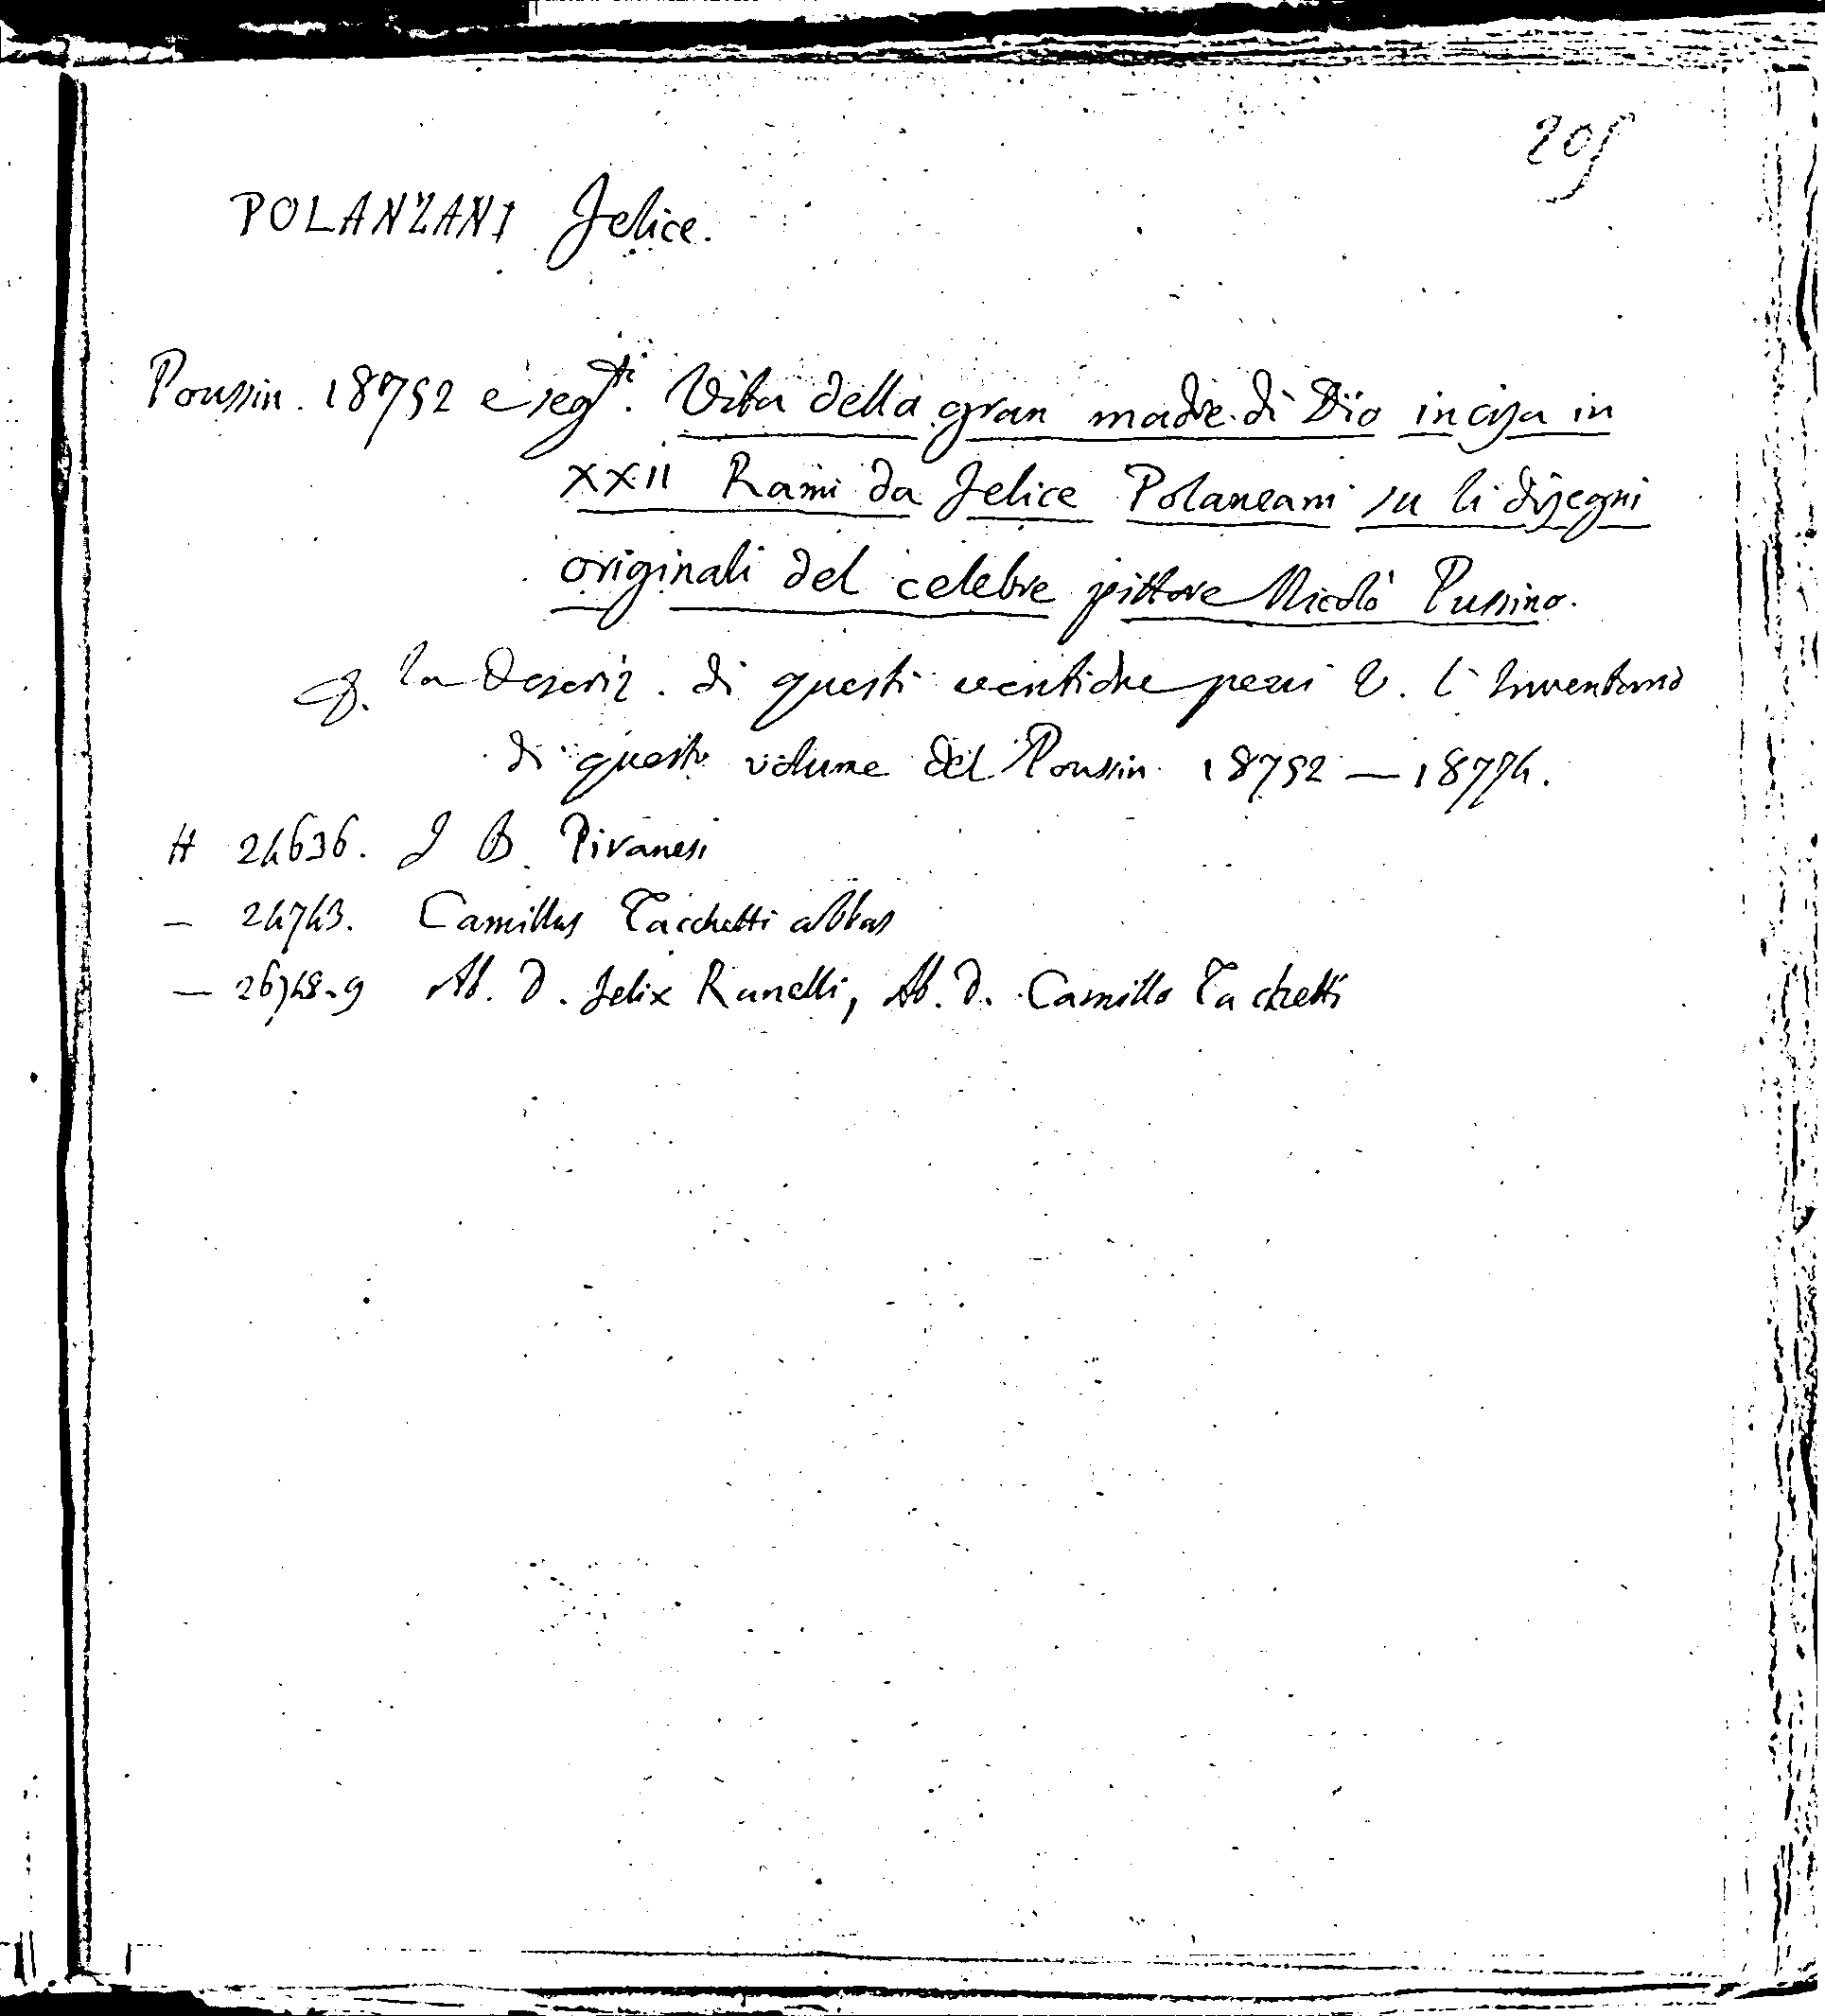 205
POLANZANI Felice.
Poussin. 18752 e seg.ti. Vita della gran madre di Dio incisa in
XXII Rami da Felice Polanzani su li disegni
originali del celebre pittore Nicolò Pussino.
la descriz. di questi ventidue pezzi v. l'Inventario
di questo volume del Poussin 18752 — 18774.
H 24636. J B Piranesi
— 24743. Camillus Tacchetti abbas
— 26748-9 Ab. D. Felix Runelli, Ab. D. Camillo Tachetti